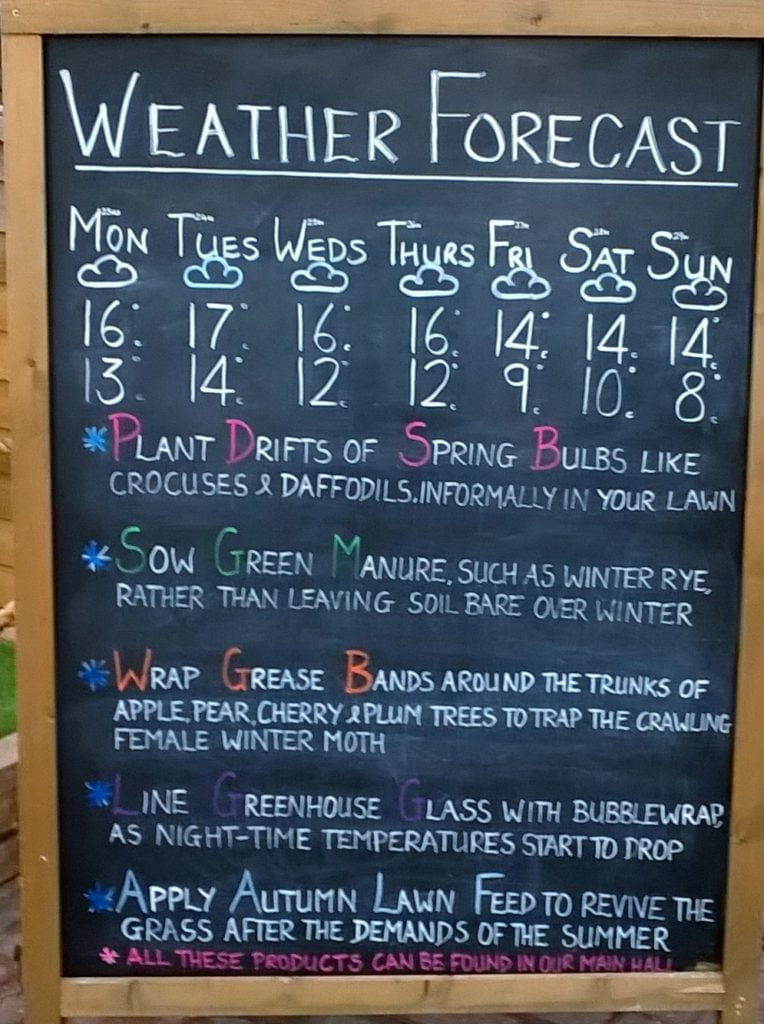 WEATHER FORECAST
MON TUES WEDS THURS FRI SAT SUN
16°C 17° 16°C 16°C 14°C 14°C 14°C
13°C 14°C 12°C 12°C 9°C 10°C 8°C
* PLANT DRIFTS OF SPRING BULBS LIKE
CROCUSES & DAFFODILS. INFORMALLY IN YOUR LAWN
* SOW GREEN MANURE, SUCH AS WINTER RYE,
RATHER THAN LEAVING SOIL BARE OVER WINTER
* WRAP GREASE BANDS AROUND THE TRUNKS OF
APPLE, PEAR, CHERRY & PLUM TREES TO TRAP THE CRAWLING
FEMALE WINTER MOTH
* LINE GREENHOUSE GLASS WITH BUBBLEWRAP,
AS NIGHT-TIME TEMPERATURES START TO DROP
* APPLY AUTUMN LAWN FEED TO REVIVE THE
GRASS AFTER THE DEMANDS OF THE SUMMER
* ALL THESE PRODUCTS CAN BE FOUND IN OUR MAIN HALL